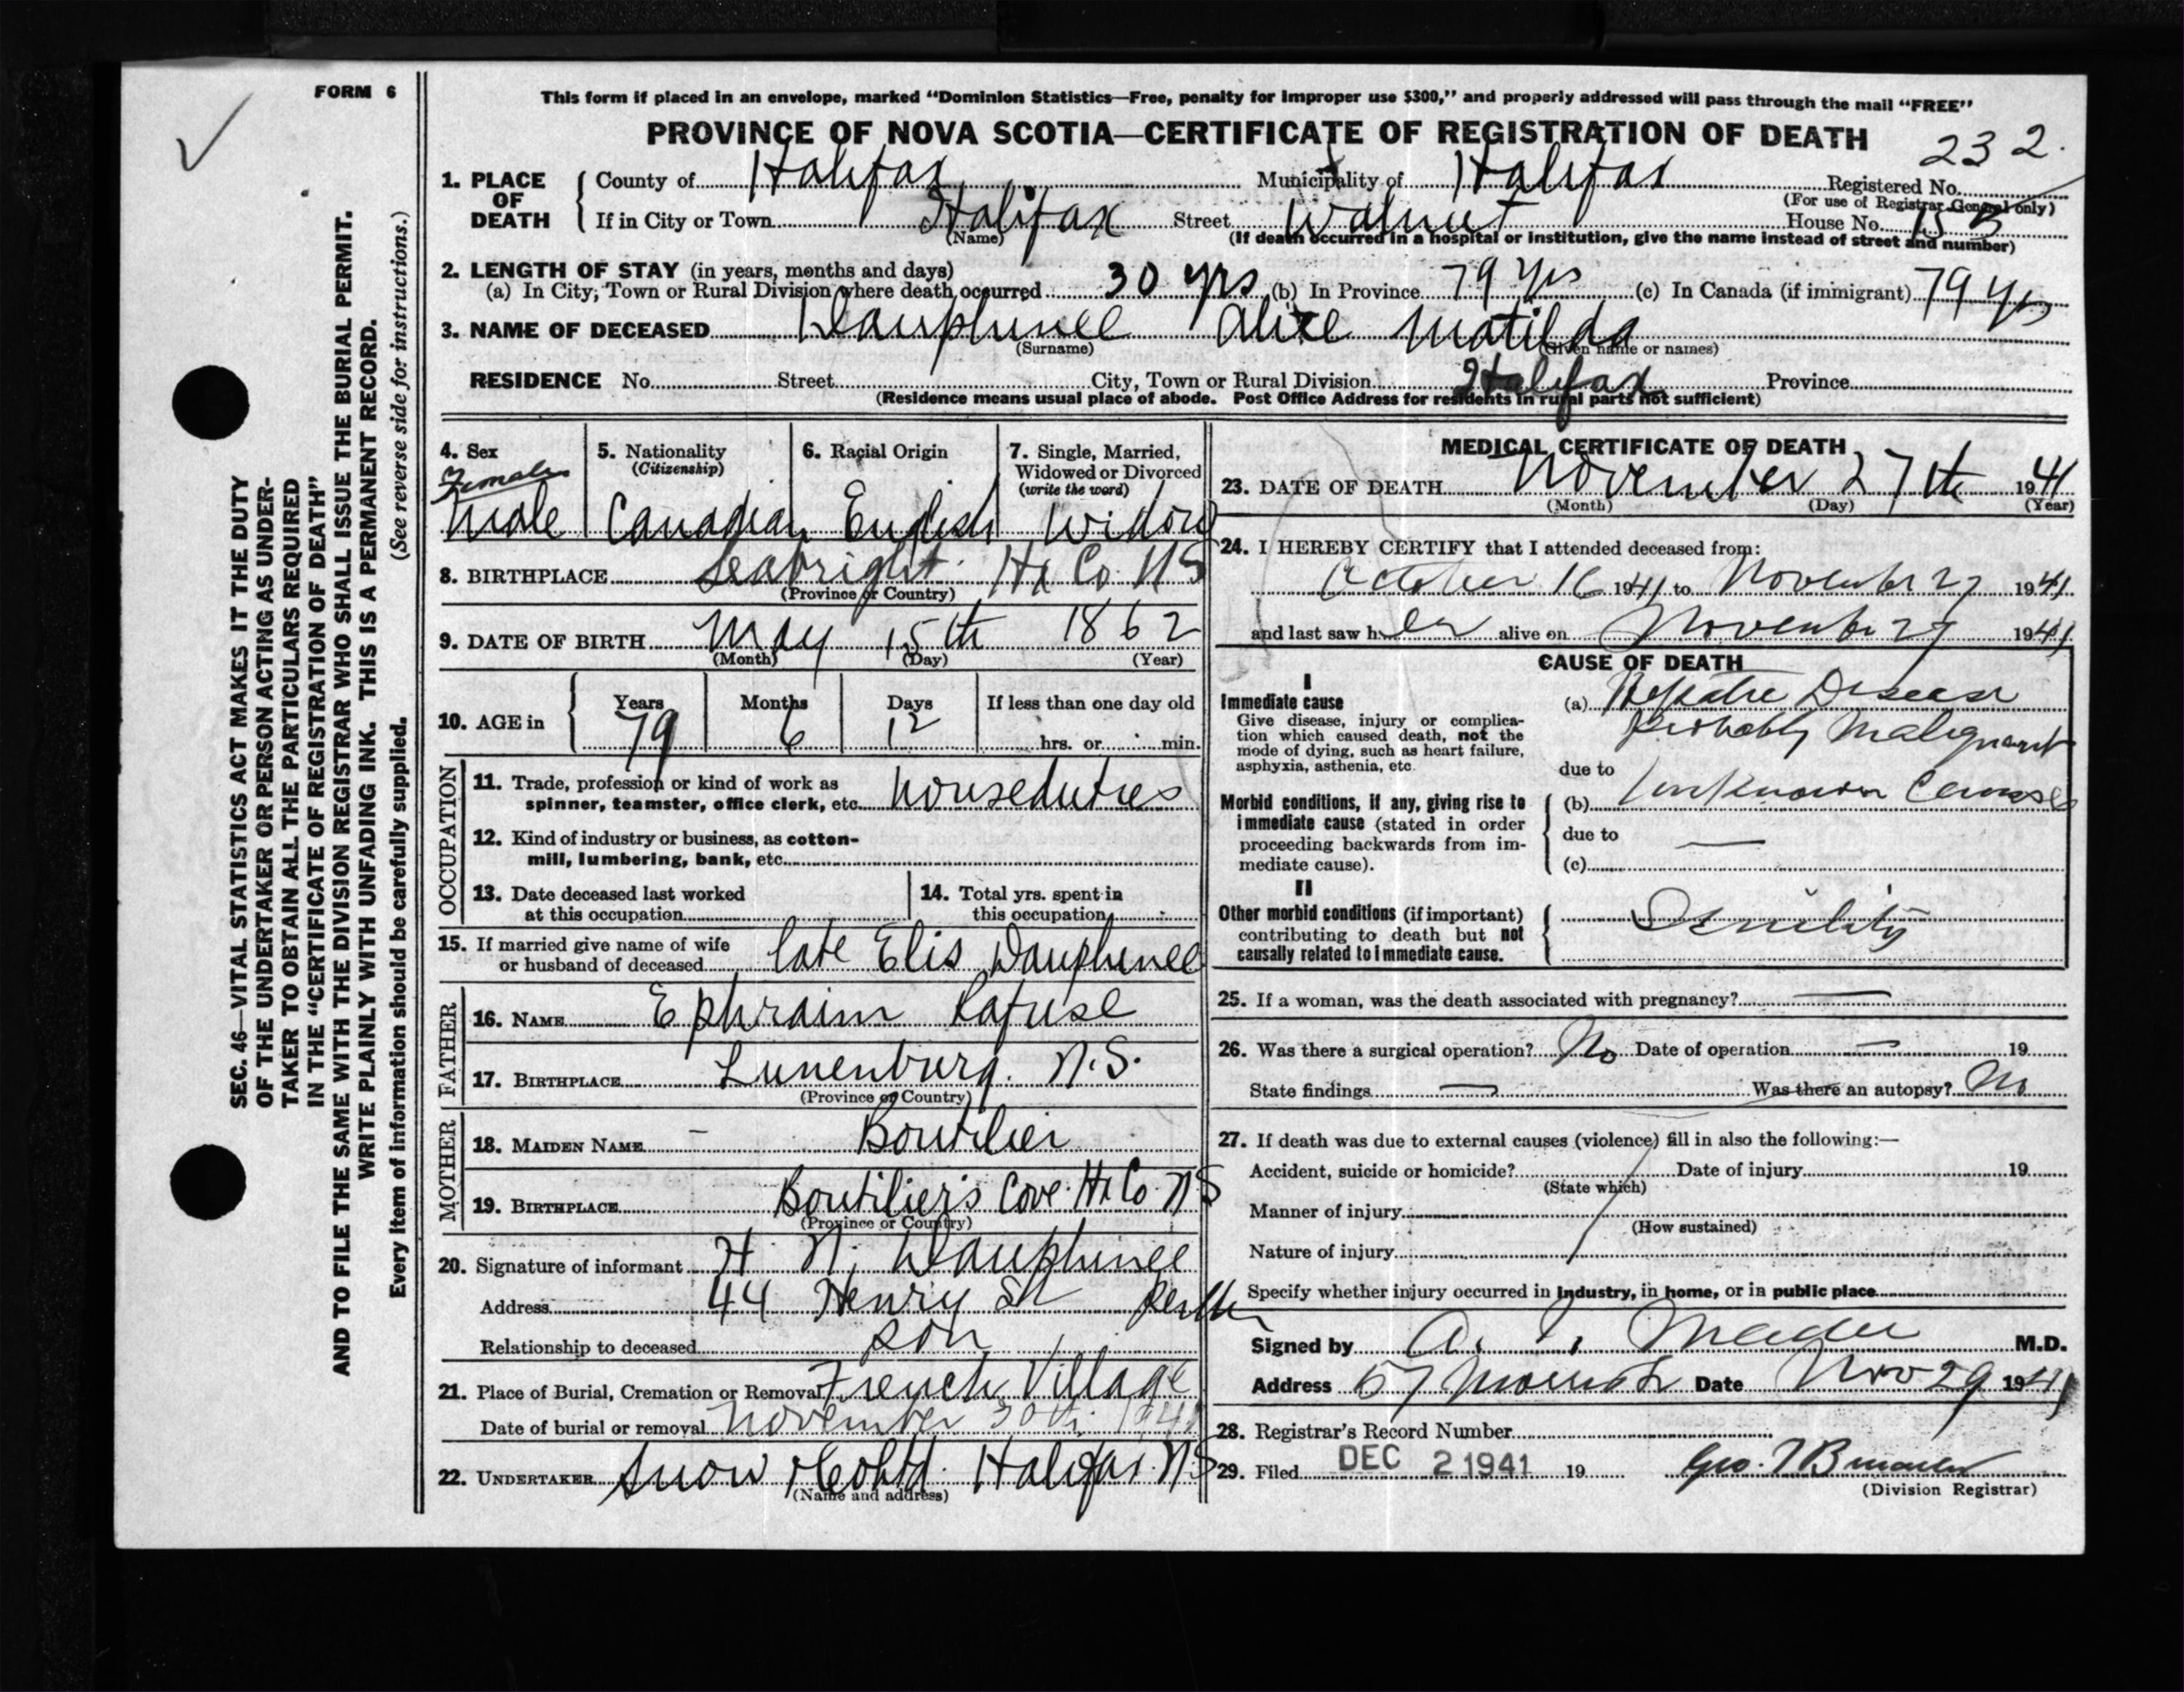 FORM 6
This form if placed in an envelope, marked "Dominion Statistics—Free, penalty for improper use $300," and properly addressed will pass through the mail "FREE"
PROVINCE OF NOVA SCOTIA—CERTIFICATE OF REGISTRATION OF DEATH
232
1. PLACE OF DEATH County of Halifax Municipality of Halifax Registered No.
(For use of Registrar General only)
If in City or Town Halifax Street Walnut House No. 15 B
(Name) (If death occurred in a hospital or institution, give the name instead of street and number)
2. LENGTH OF STAY (in years, months and days)
(a) In City, Town or Rural Division where death occurred 30 yrs (b) In Province 79 yrs (c) In Canada (if immigrant) 79 yrs
3. NAME OF DECEASED Dauphinee Alice Matilda
(Surname) (Given name or names)
RESIDENCE No. Street City, Town or Rural Division Halifax Province
(Residence means usual place of abode. Post Office Address for residents in rural parts not sufficient)
4. Sex 5. Nationality (Citizenship) 6. Racial Origin 7. Single, Married, Widowed or Divorced (write the word)
Female
Male Canadian English Widow
8. BIRTHPLACE Seabright Hx Co. NS
(Province or Country)
9. DATE OF BIRTH May 15th 1862
(Month) (Day) (Year)
10. AGE in Years Months Days If less than one day old
79 6 12 hrs. or min.
OCCUPATION
11. Trade, profession or kind of work as
spinner, teamster, office clerk, etc. houseduties
12. Kind of industry or business, as cotton-
mill, lumbering, bank, etc.
13. Date deceased last worked at this occupation
14. Total yrs. spent in this occupation
15. If married give name of wife
or husband of deceased late Elis Dauphinee
FATHER
16. NAME Ephraim Rafuse
17. BIRTHPLACE Lunenburg. N.S.
(Province or Country)
MOTHER
18. MAIDEN NAME – Boutilier
19. BIRTHPLACE Boutilier's Cove Hx Co. NS
(Province or Country)
20. Signature of informant H. N. Dauphinee
Address 44 Henry St
Relationship to deceased son
21. Place of Burial, Cremation or Removal French Village
Date of burial or removal November 30th 1941
22. UNDERTAKER Snow & Co Ltd. Halifax. N.S
(Name and address)
MEDICAL CERTIFICATE OF DEATH
23. DATE OF DEATH November 27th 1941
(Month) (Day) (Year)
24. I HEREBY CERTIFY that I attended deceased from:
October 16 1941 to November 27 1941
and last saw her alive on November 27 1941
CAUSE OF DEATH
I
Immediate cause
Give disease, injury or complica-
tion which caused death, not the
mode of dying, such as heart failure,
asphyxia, asthenia, etc.
(a) Hepatic Disease
Probably Malignant
due to
Morbid conditions, if any, giving rise to
immediate cause (stated in order
proceeding backwards from im-
mediate cause).
(b) Unknown Causes
due to —
(c)
II
Other morbid conditions (if important)
contributing to death but not
causally related to immediate cause.
Senility
25. If a woman, was the death associated with pregnancy? —
26. Was there a surgical operation? No Date of operation — 19
State findings — Was there an autopsy? No
27. If death was due to external causes (violence) fill in also the following:—
Accident, suicide or homicide? Date of injury 19
(State which)
Manner of injury
(How sustained)
Nature of injury
Specify whether injury occurred in industry, in home, or in public place
Signed by M.D.
Address 57 Morris St Date Nov 29 1941
28. Registrar's Record Number
29. Filed DEC 2 1941 19
(Division Registrar)
SEC. 46—VITAL STATISTICS ACT MAKES IT THE DUTY
OF THE UNDERTAKER OR PERSON ACTING AS UNDER-
TAKER TO OBTAIN ALL THE PARTICULARS REQUIRED
IN THE "CERTIFICATE OF REGISTRATION OF DEATH"
AND TO FILE THE SAME WITH THE DIVISION REGISTRAR WHO SHALL ISSUE THE BURIAL PERMIT.
WRITE PLAINLY WITH UNFADING INK. THIS IS A PERMANENT RECORD.
Every item of information should be carefully supplied. (See reverse side for instructions.)